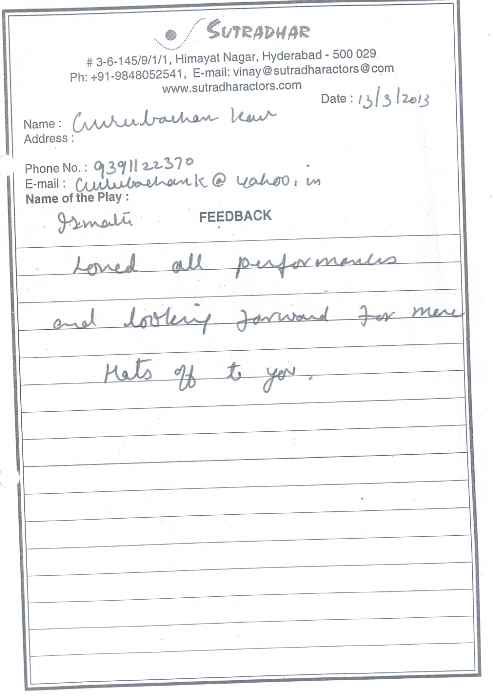 SUTRADHAR
# 3-6-145/9/1/1, Himayat Nagar, Hyderabad - 500 029
Ph: +91-9848052541, E-mail: vinay@sutradharactors@com
www.sutradharactors.com
Date : 13/3/2013
Name : Gurubachan Kaur
Address :
Phone No. : 9391122370
E-mail : Gurubachank@yahoo.in
Name of the Play :
Ismati FEEDBACK
Loved all performances
and looking forward for more
Hats off to you.